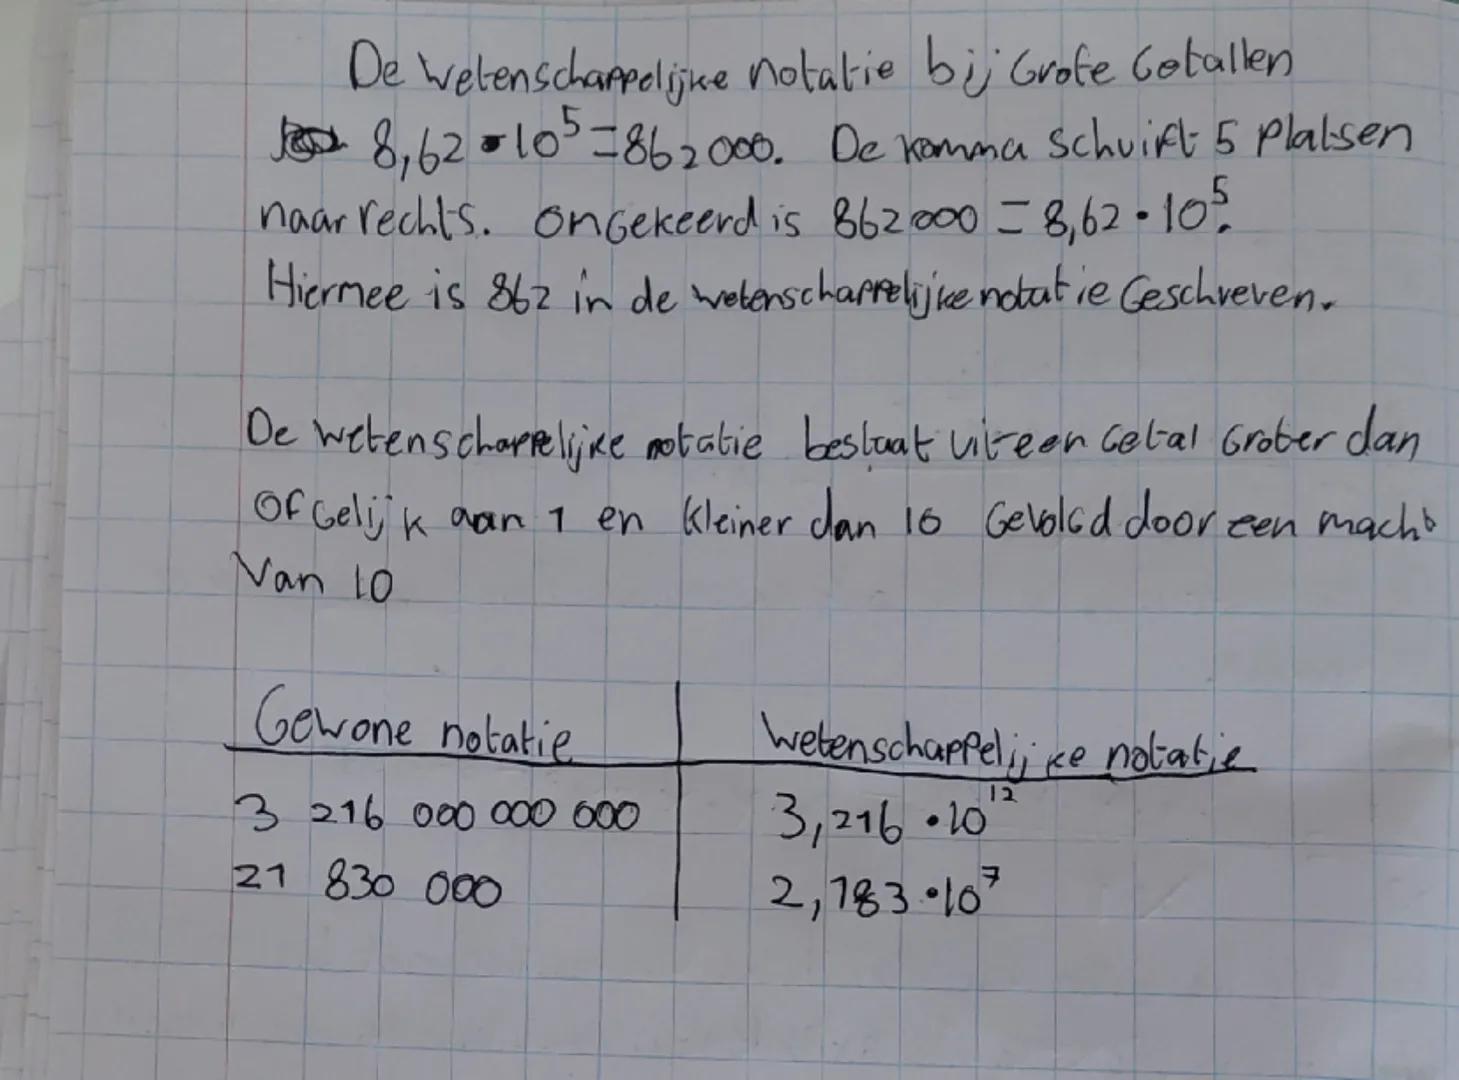 De wetenschappelijke notatie bij Grote Getallen
8,62 • 10⁵ = 862 000. De komma schuift 5 platsen
naar rechts. omgekeerd is 862 000 = 8,62 • 10⁵.
Hiermee is 862 in de wetenschappelijke notatie Geschreven.
De wetenschappelijke notatie bestaat uit een Getal Groter dan
of Gelijk aan 1 en kleiner dan 10 Gevolgd door een macht
Van 10
Gewone notatie | wetenschappelijke notatie
3 216 000 000 000 | 3,216 • 10¹²
21 830 000 | 2,183 • 10⁷